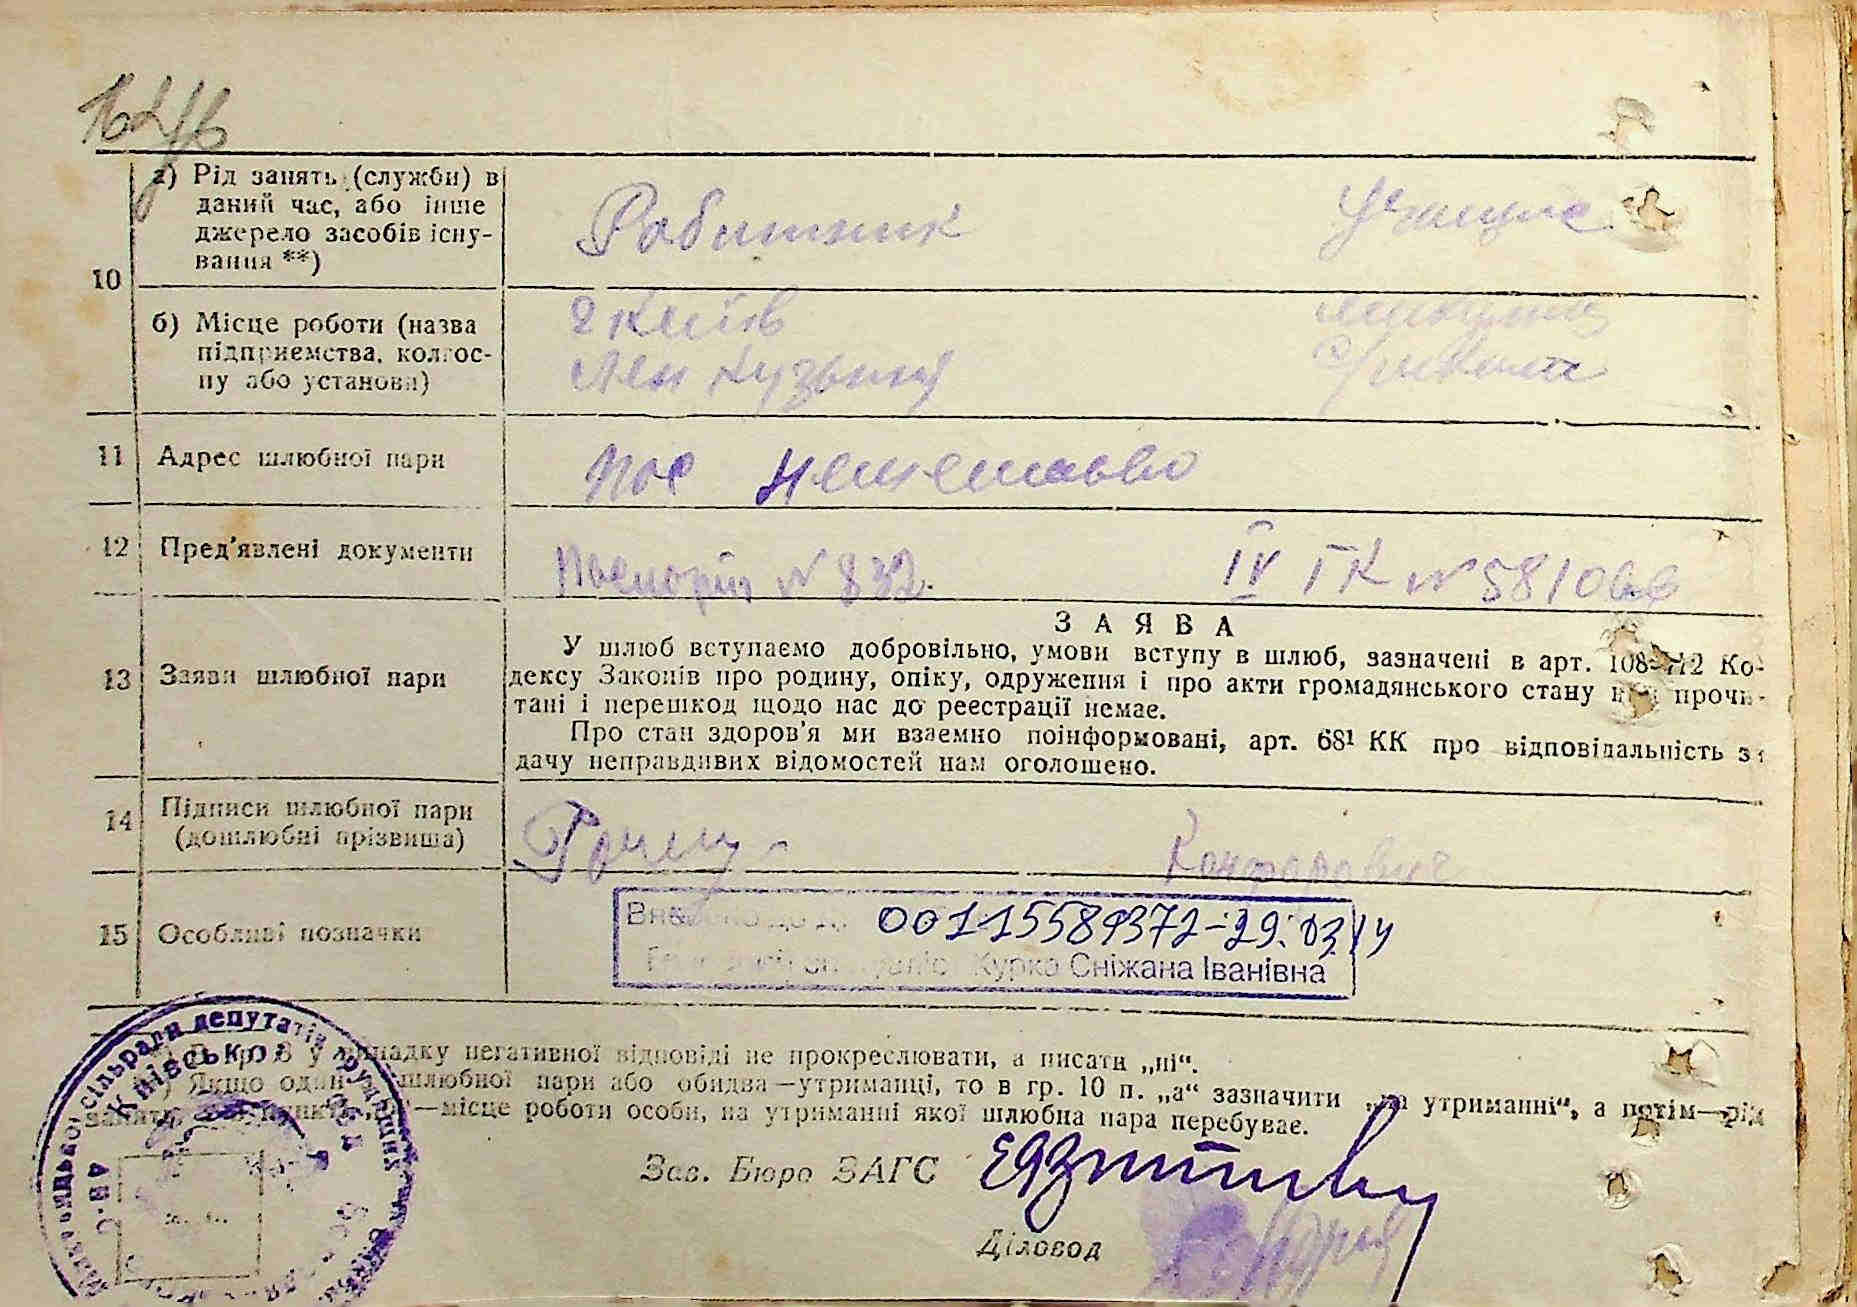 10
а) Рід занять (служби) в
даний час, або інше
джерело засобів існу-
вання **)
Робитник
б) Місце роботи (назва
підприємства, колгос-
пу або установи)
Київ
Лен Кузьня
11 Адрес шлюбної пари
Пос
12 Пред'явлені документи
Паспорт № 832.
IV ГК № 581066
13 Заяви шлюбної пари
ЗАЯВА
У шлюб вступаємо добровільно, умови вступу в шлюб, зазначені в арт. 108-112 Ко-
дексу Законів про родину, опіку, одруження і про акти громадянського стану прочи-
тані і перешкод щодо нас до реєстрації немає.
Про стан здоров'я ми взаємно поінформовані, арт. 68¹ КК про відповідальність за
дачу неправдивих відомостей нам оголошено.
14 Підписи шлюбної пари
(дошлюбні прізвища)
Конфорович
15 Особливі позначки
00115589372-29.03.14
Курко Сніжана Іванівна
у випадку негативної відповіді не прокреслювати, а писати „ні“.
Якщо один шлюбної пари або обидва—утриманці, то в гр. 10 п. „а“ зазначити „на утриманні“, а потім—рід
—місце роботи особи, на утриманні якої шлюбна пара перебуває.
сільради депутатів трудящих
Київської
Зав. Бюро ЗАГС
Діловод